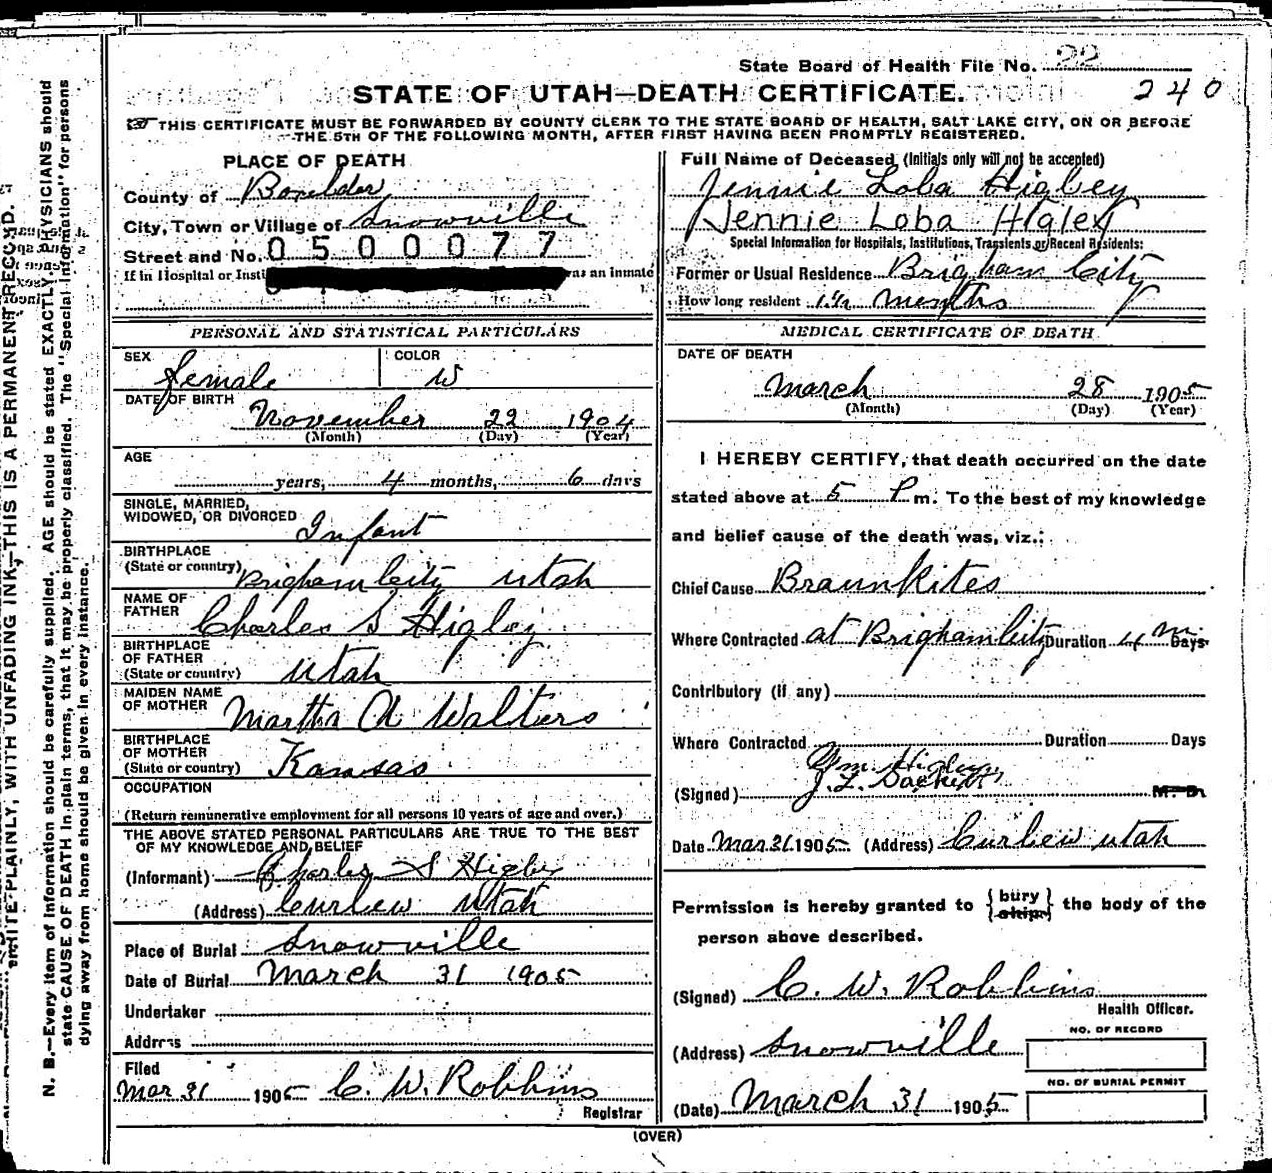 State Board of Health File No. 22
240
STATE OF UTAH—DEATH CERTIFICATE.
THIS CERTIFICATE MUST BE FORWARDED BY COUNTY CLERK TO THE STATE BOARD OF HEALTH, SALT LAKE CITY, ON OR BEFORE
THE 5TH OF THE FOLLOWING MONTH, AFTER FIRST HAVING BEEN PROMPTLY REGISTERED.
PLACE OF DEATH
County of Boxelder
City, Town or Village of Snowville
Street and No. 0500077
If in Hospital or Insti as an inmate
Full Name of Deceased (Initials only will not be accepted)
Jennie Loba Higley
Jennie Loba Higley
Special Information for Hospitals, Institutions, Transients or Recent Residents:
Former or Usual Residence Brigham City
How long resident months
PERSONAL AND STATISTICAL PARTICULARS
SEX female
COLOR W
DATE OF BIRTH
November 22 1904
(Month) (Day) (Year)
AGE
years, 4 months, 6 days
SINGLE, MARRIED,
WIDOWED, OR DIVORCED Infant
BIRTHPLACE
(State or country) Brigham City Utah
NAME OF
FATHER Charles S Higley
BIRTHPLACE
OF FATHER
(State or country) Utah
MAIDEN NAME
OF MOTHER Martha A Walters
BIRTHPLACE
OF MOTHER
(State or country) Kansas
OCCUPATION
(Return remunerative employment for all persons 10 years of age and over.)
THE ABOVE STATED PERSONAL PARTICULARS ARE TRUE TO THE BEST
OF MY KNOWLEDGE AND BELIEF
(Informant) Charles S Higley
(Address) Curlew Utah
Place of Burial Snowville
Date of Burial March 31 1905
Undertaker
Address
Filed
Mar 31 1905 C. W. Robbins
Registrar
MEDICAL CERTIFICATE OF DEATH
DATE OF DEATH
March 28 1905
(Month) (Day) (Year)
I HEREBY CERTIFY, that death occurred on the date
stated above at 5 P m. To the best of my knowledge
and belief cause of the death was, viz.:
Chief Cause Braunkites
Where Contracted at Brigham City Duration 4 Days
Contributory (if any)
Where Contracted Duration Days
Wm. Higley
(Signed) J. L. M. D.
Date Mar 31 1905 (Address) Curlew Utah
Permission is hereby granted to { bury ship } the body of the
person above described.
(Signed) C. W. Robbins
Health Officer.
(Address) Snowville
NO. OF RECORD
NO. OF BURIAL PERMIT
(Date) March 31 1905
(OVER)
N. B.—Every item of information should be carefully supplied. AGE should be stated EXACTLY. PHYSICIANS should
state CAUSE OF DEATH in plain terms, that it may be properly classified. The "Special Information" for persons
dying away from home should be given in every instance.
WRITE PLAINLY, WITH UNFADING INK—THIS IS A PERMANENT RECORD.